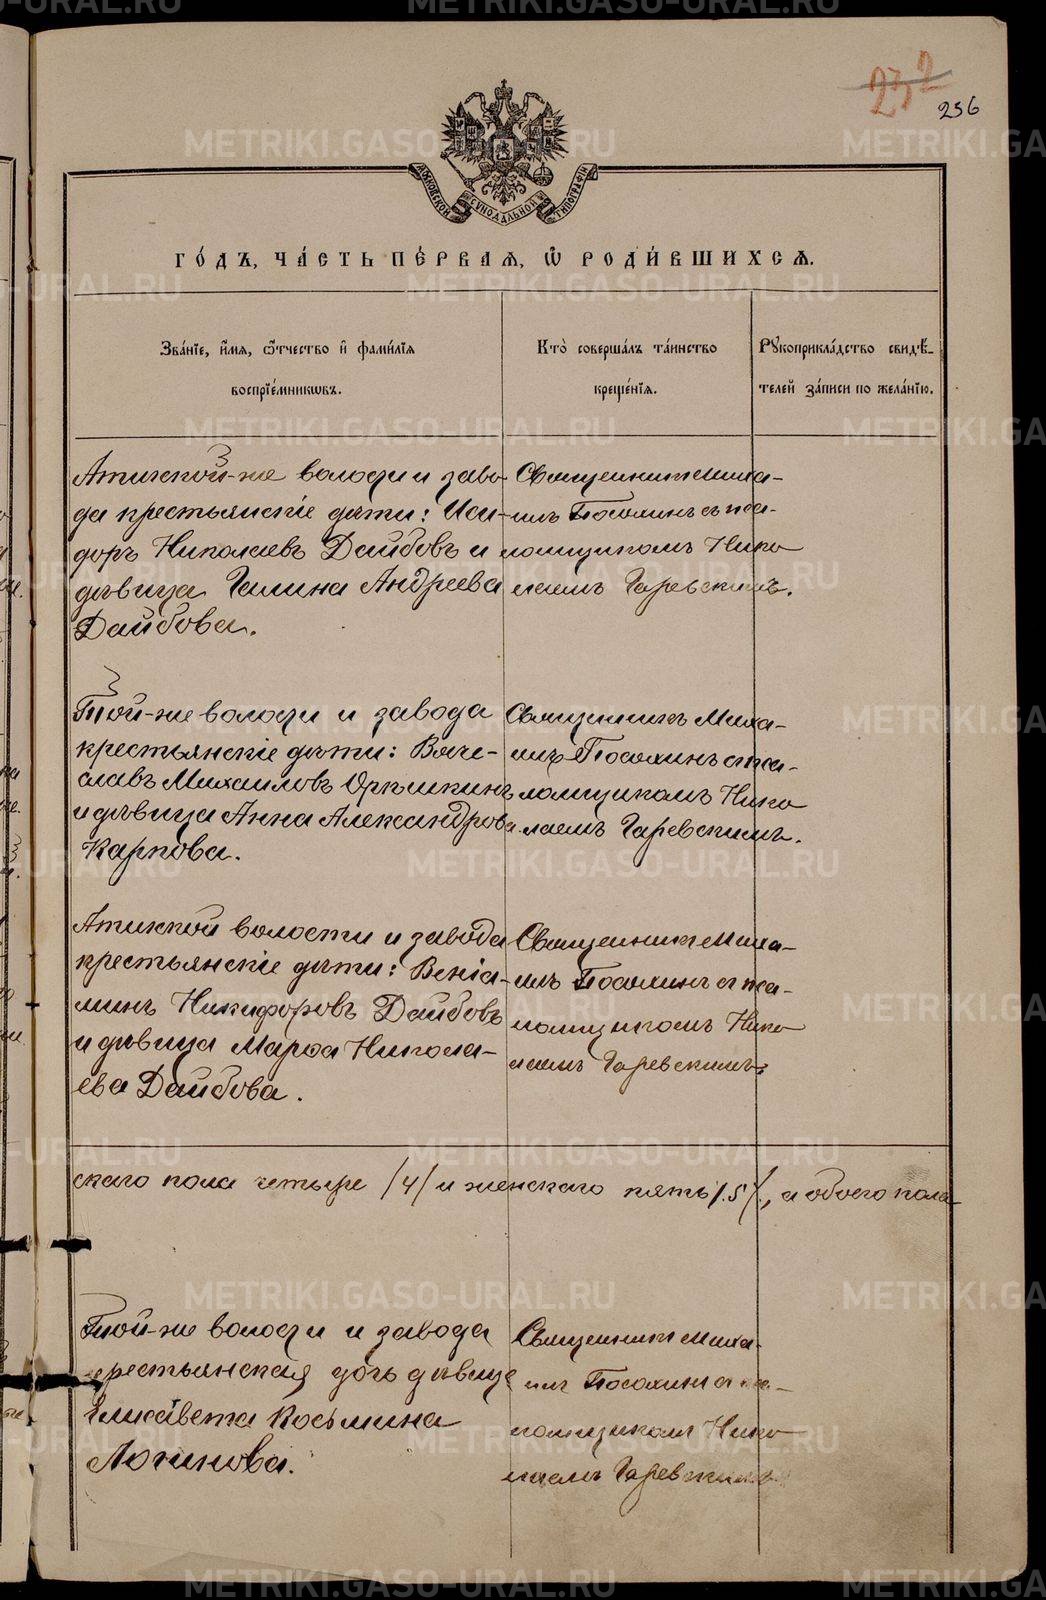 METRIKI.GASO-URAL.RU
232
256
МОСКОВСКОЙ СѴНОДАЛЬНОЙ ТИПОГРАФІИ
ГО́ДЪ, ЧА́СТЬ ПЕ́РВАѦ, Ѽ РОДИ́ВШИХСѦ.
Зва́нїе, и҆́мѧ, ѻ҆́тчество и҆ фами́лїѧ
воспрїе́мникѡвъ.
Кто̀ соверша́лъ та́инство
креще́нїѧ.
Рꙋкоприкла́дство свидѣ́-
телей за́писи по жела́нїю.
Атигской-же волости и заво-
да крестьянскіе дѣти: Иси-
доръ Николаевъ Дайбовъ и
дѣвица Галина Андреева
Дайбова.
Священникъ Миха-
илъ Посохинъ съ пса-
ломщикомъ Нико
лаемъ Гаревскимъ.
Той-же волости и завода
крестьянскіе дѣти: Вяче-
славъ Михаиловъ Орѣшкинъ
и дѣвица Анна Александрова
Карпова.
Священникъ Миха-
илъ Посохинъ съ пса-
ломщикомъ Нико
лаемъ Гаревскимъ.
Атигской волости и завода
крестьянскіе дѣти: Веніа-
минъ Никифоровъ Дайбовъ
и дѣвица Марѳа Никола-
ева Дайбова.
Священникъ Миха-
илъ Посохинъ съ пса-
ломщикомъ Нико
лаемъ Гаревскимъ.
скаго пола четыре /4/ и женскаго пять /5/, а обоего пола
Той-же волости и завода
крестьянская дочь дѣвица
Елисавета Косьмина
Логинова.
Священникъ Миха-
илъ Посохинъ съ пса-
ломщикомъ Нико
лаемъ Гаревскимъ.